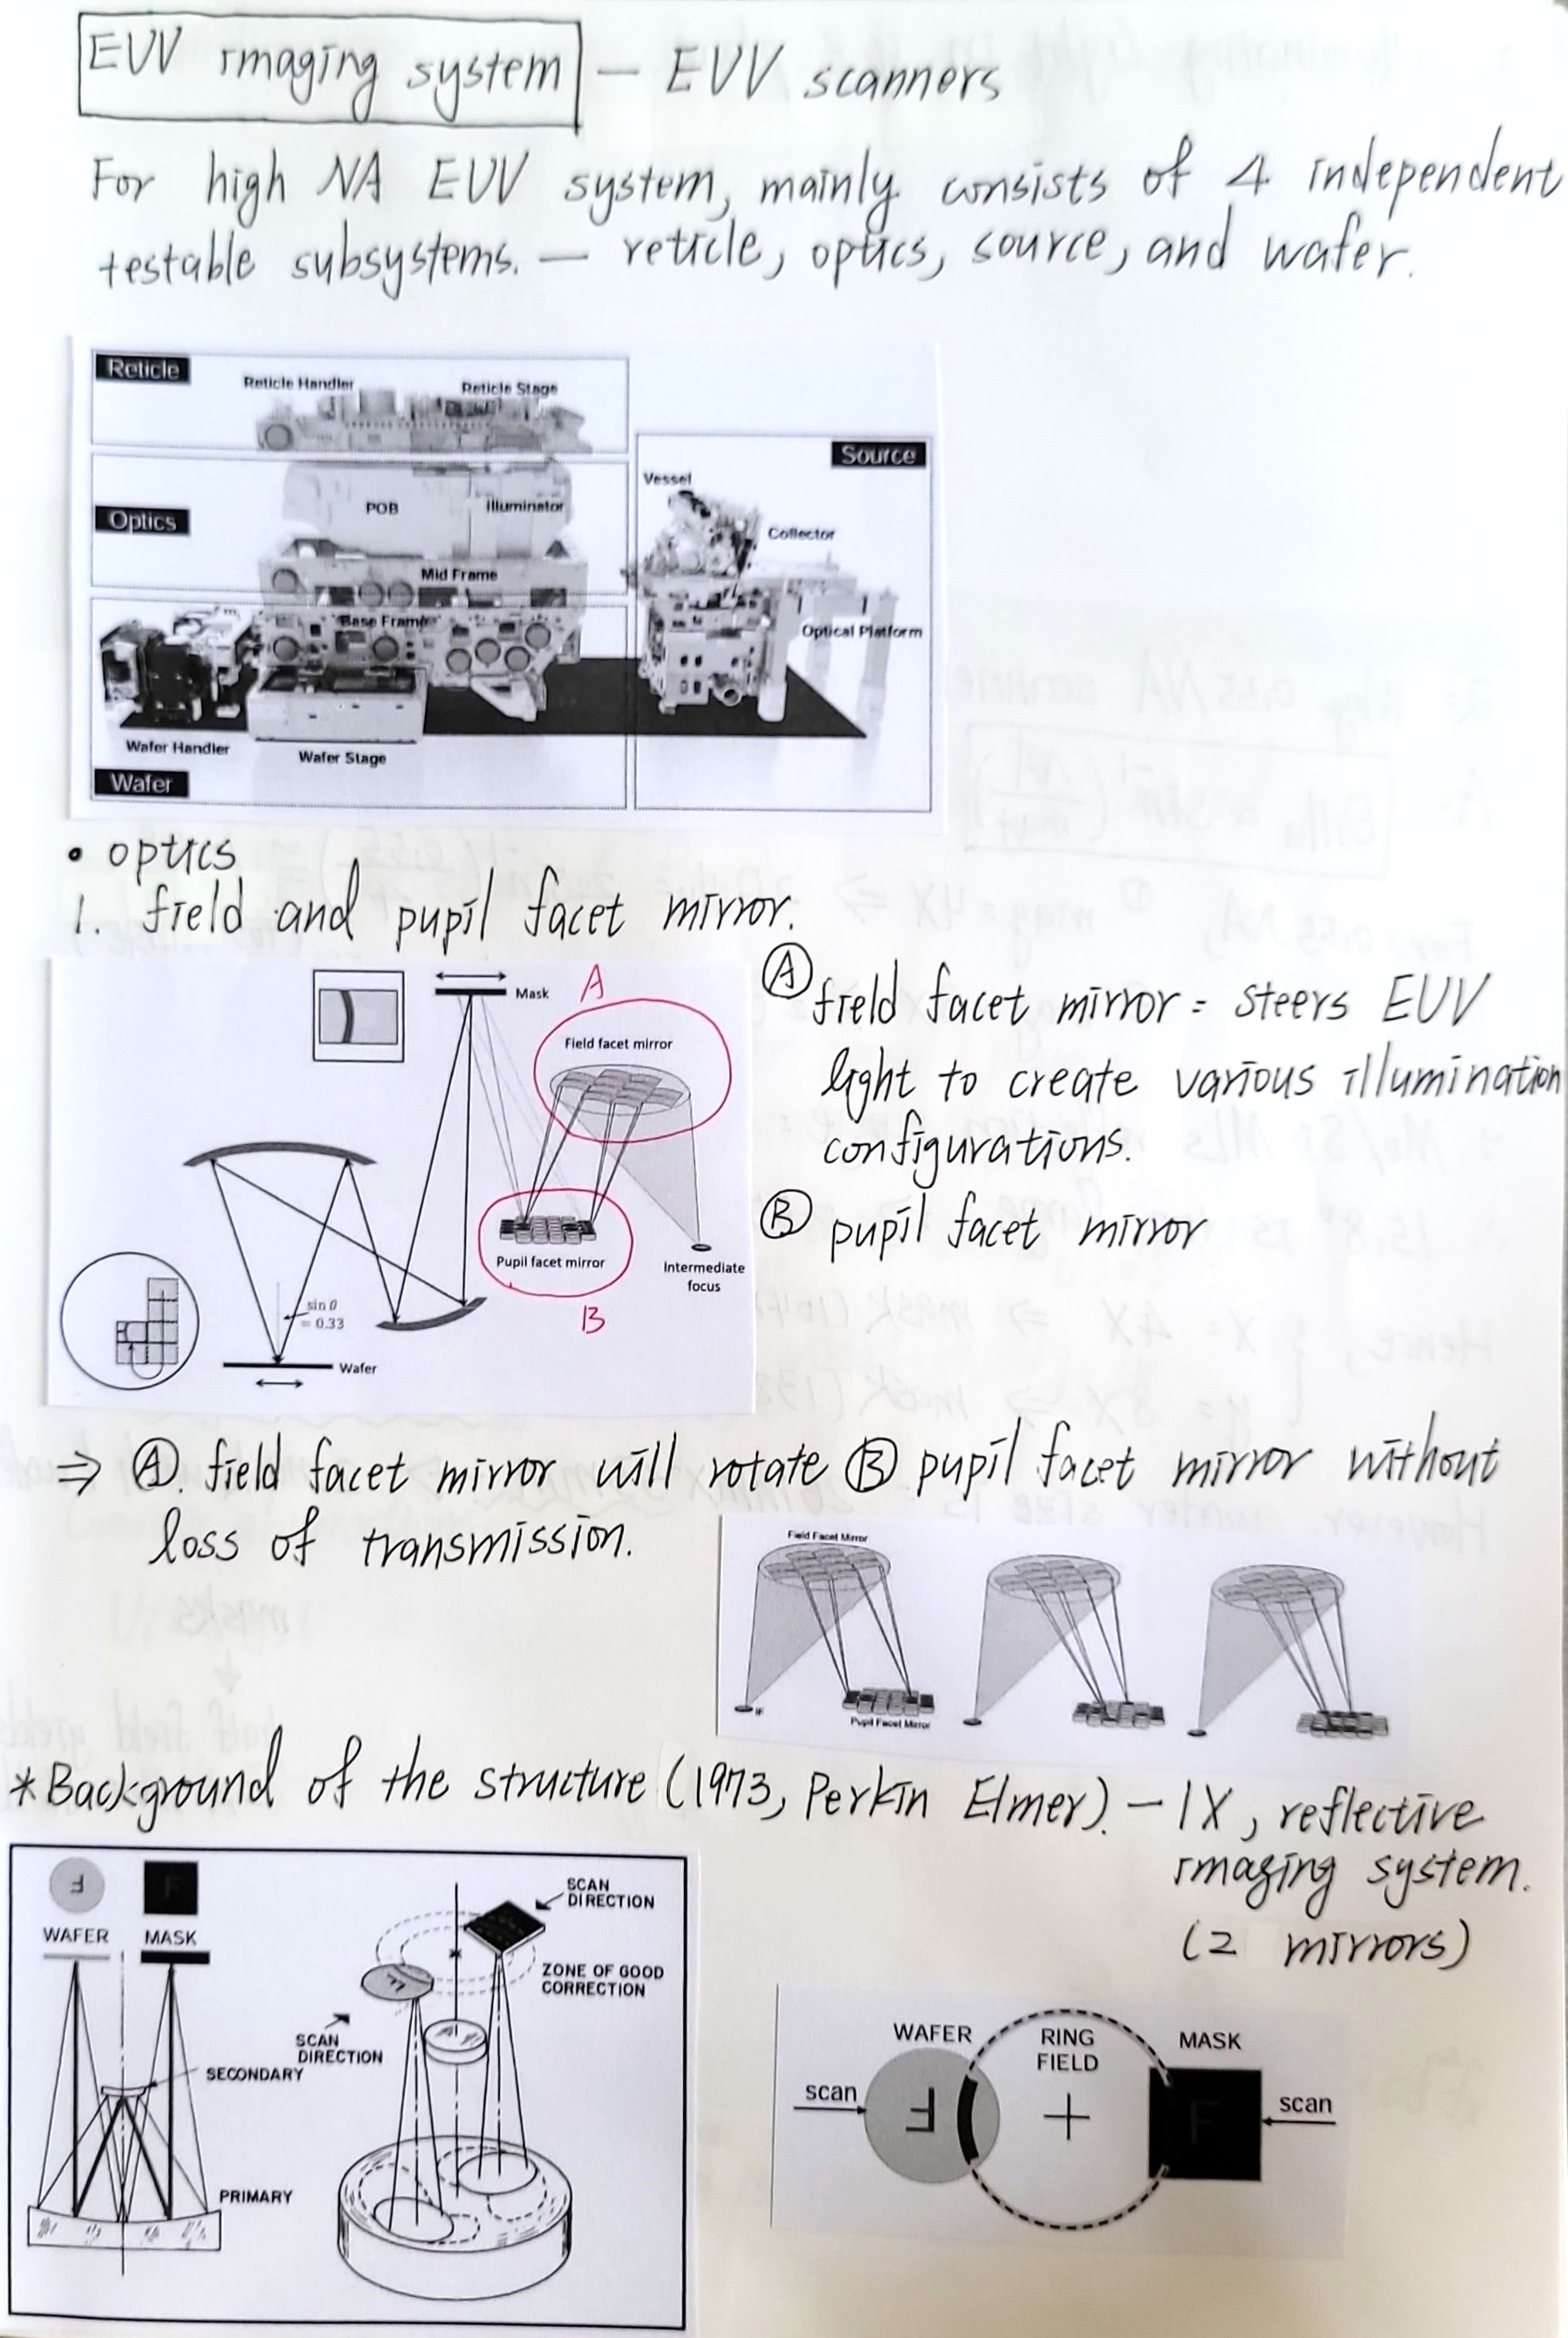 EUV imaging system — EUV scanners
For high NA EUV system, mainly consists of 4 independent
testable subsystems. — reticle, optics, source, and wafer.
Reticle
Reticle Handler
Reticle Stage
Source
Vessel
Collector
Optics
POB
Illuminator
Mid Frame
Base Frame
Optical Platform
Wafer Handler
Wafer Stage
Wafer
• optics
1. field and pupil facet mirror.
Mask
A
Field facet mirror
Pupil facet mirror
B
Intermediate
focus
sin θ
= 0.33
Wafer
Ⓐ field facet mirror = steers EUV
light to create various illumination
configurations.
Ⓑ pupil facet mirror
⇒ Ⓐ. field facet mirror will rotate Ⓑ pupil facet mirror without
loss of transmission.
Field Facet Mirror
IF
Pupil Facet Mirror
*Background of the structure (1973, Perkin Elmer). — 1X, reflective
imaging system.
(2 mirrors)
F
F
WAFER
MASK
SCAN
DIRECTION
ZONE OF GOOD
CORRECTION
SCAN
DIRECTION
SECONDARY
PRIMARY
WAFER
RING
FIELD
MASK
scan
F
F
scan